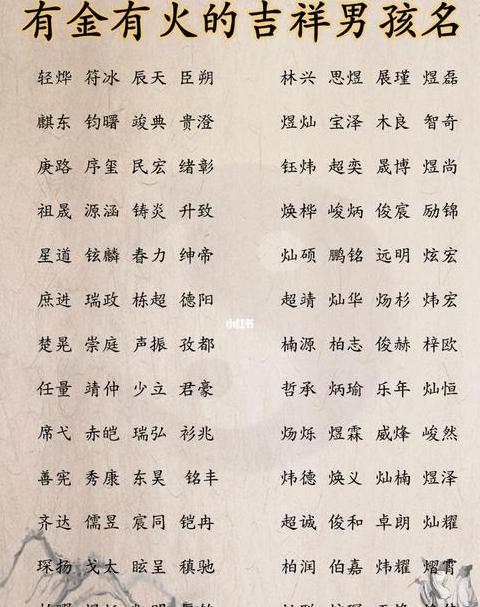 有金有火的吉祥男孩名
轻烨 符冰 辰天 臣朔 林兴 思煜 展瑾 煜磊
麒东 钧曙 竣典 贵澄 煜灿 宝泽 木良 智奇
庚路 序玺 民宏 绪彰 钰炜 超奕 晟博 煜尚
祖晟 源涵 铸炎 升致 焕桦 峻炳 俊宸 励锦
星道 铉麟 春力 绅帝 灿硕 鹏铭 远明 炫宏
庶进 瑞政 栋超 德阳 超靖 灿华 炀杉 炜宏
小红书
楚晃 崇庭 声振 孜都 楠源 柏志 俊赫 梓欧
任量 靖仲 少立 君豪 哲承 炳瑜 乐年 灿恒
席弋 赤皑 瑞弘 衫兆 炀烁 煜霖 威烽 峻然
善宪 秀康 东昊 铭丰 炜德 焕义 灿楠 煜泽
齐达 儒昱 宸同 铠冉 超诚 俊和 卓朗 灿耀
琛扬 戈太 眩呈 稹驰 柏润 伯嘉 炜耀 熠霄